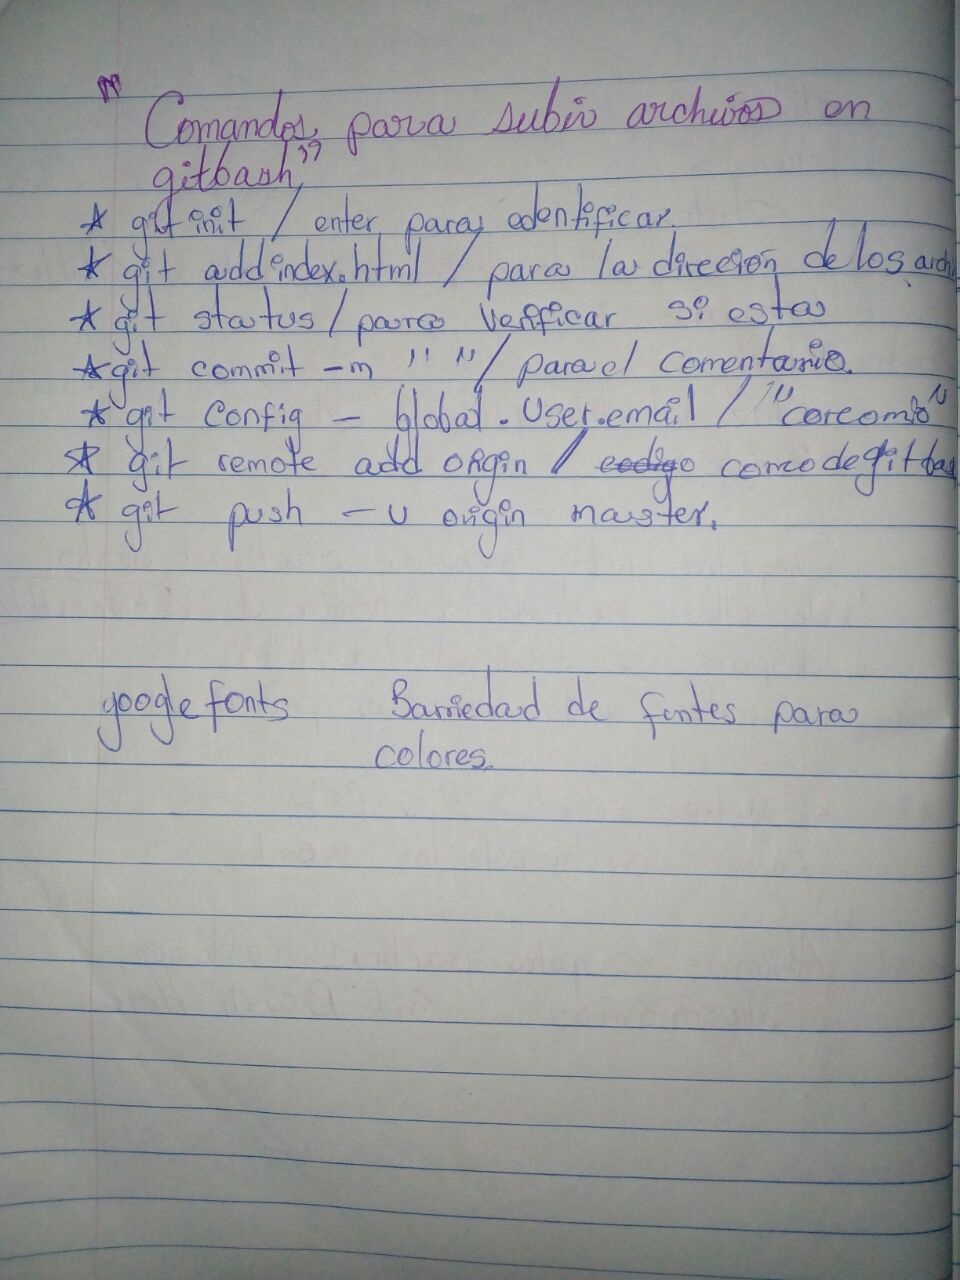 "Comandos para subir archivos en
gitbash"
* git init / enter para edentificar.
* git add index.html / para la direción de los arch
* git status / para verificar si esta
* git commit -m " " / para el comentario.
* git config - global . User.email / "coreomio"
* git remote add origin / codigo comodegitbas
* git push -u origin master.
google fonts Barriedad de fintes para
colores.